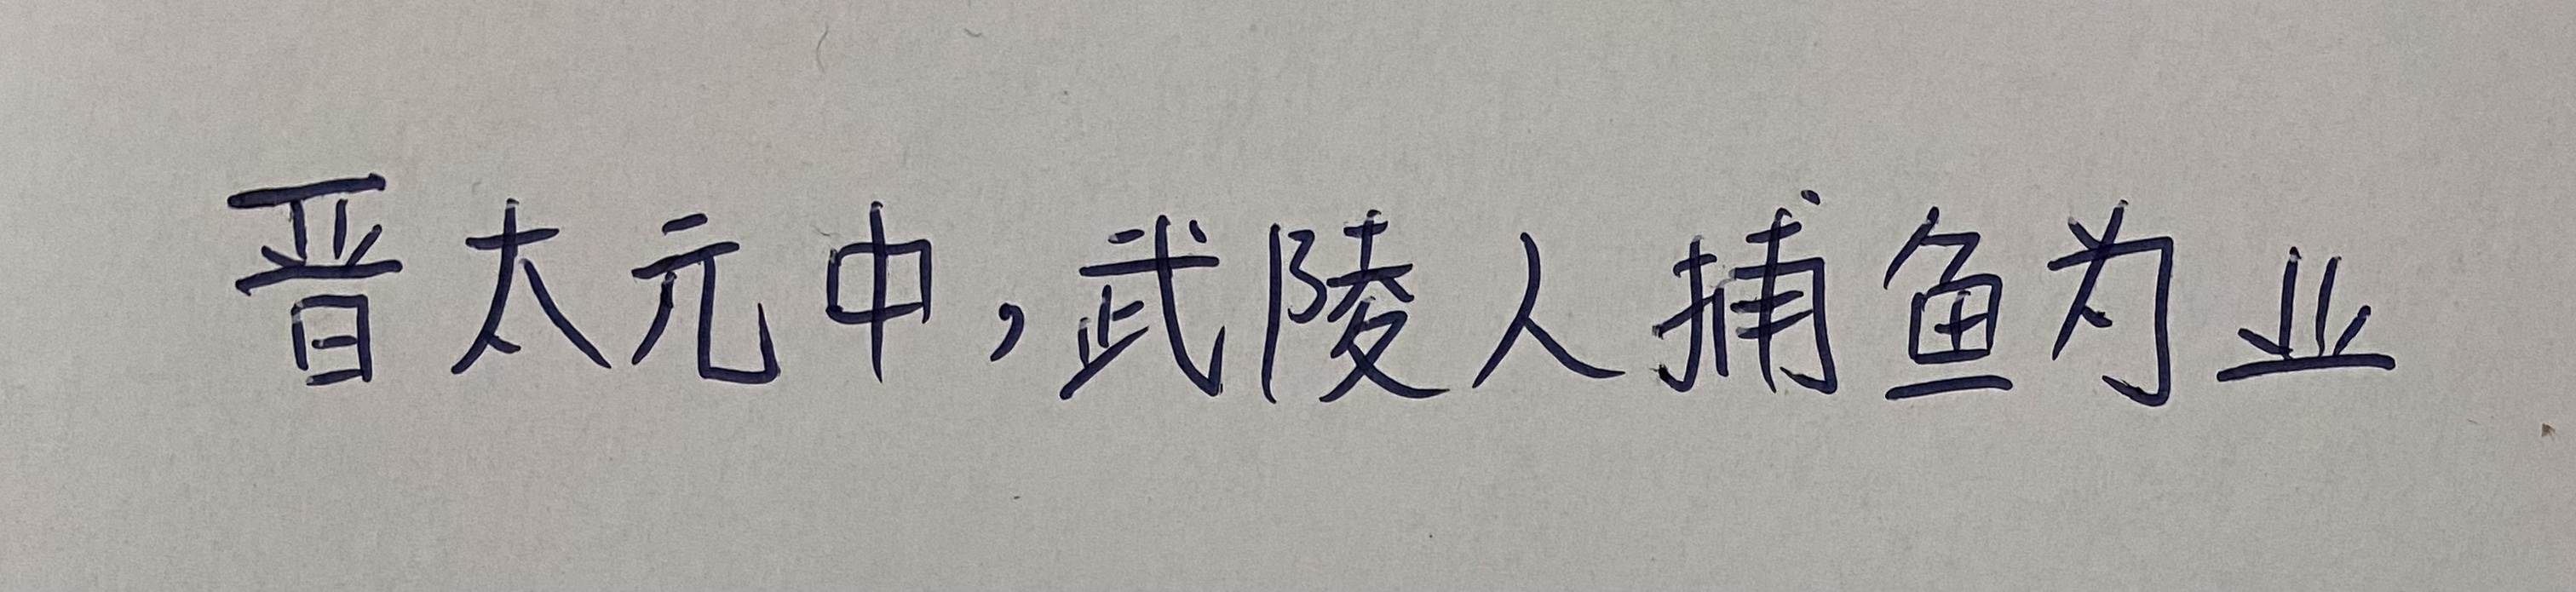 晋太元中，武陵人捕鱼为业